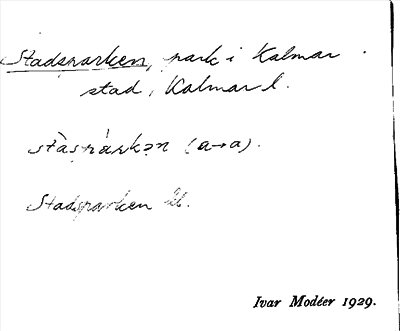 Stadsparken, park i Kalmar
stad, Kalmar l.
stàspárkən (a→a).
Stadsparken
Ivar Modéer 1929.